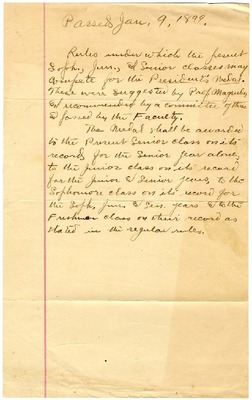 Passed Jan. 9, 1899.
Rules under which the present
Soph., Jun., & Senior classes may
compete for the President's Medal.
These were suggested by Prof. Magruder,
& recommended by a committee of three
& passed by the Faculty.
The Medal shall be awarded
to the Present Senior class on its
record for the Senior Year alone,
to the junior class on its record
for the junior & Senior years, to the
Sophomore class on its record for
the Soph, Jun, & Sen. years & to the
Freshman class on their record as
stated in the regular rules.